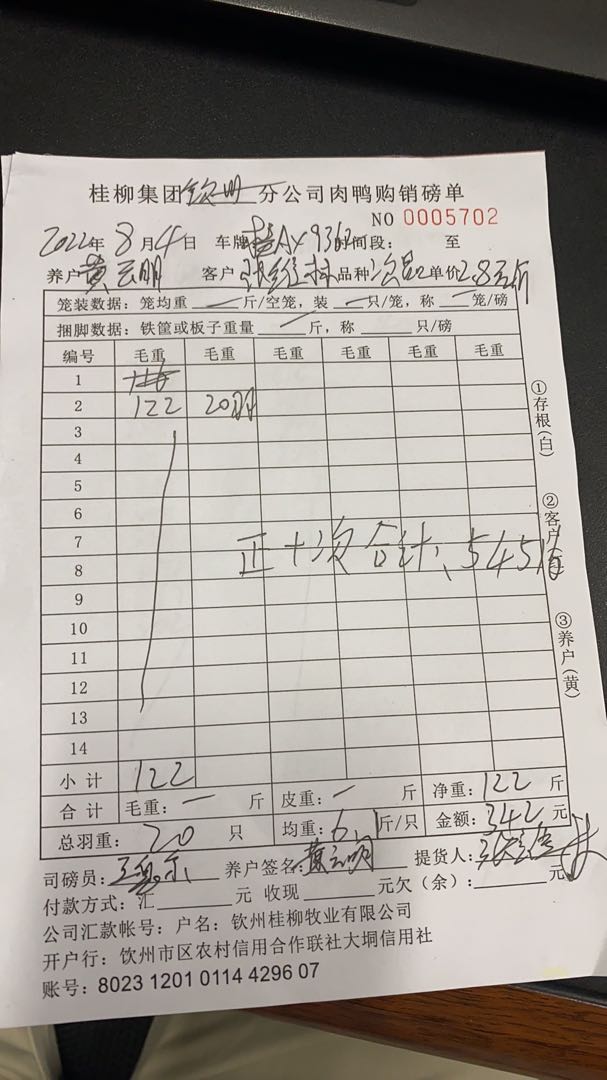 桂柳集团 钦州 分公司肉鸭购销磅单
NO 0005702
2022年 8月4日 车牌 A 9362 时间段: 至
养户 黄云明 客户 张 林 品种 次品 单价 2.8元/斤
笼装数据: 笼均重 — 斤/空笼, 装 — 只/笼, 称 — 笼/磅
捆脚数据: 铁筐或板子重量 — 斤, 称 只/磅
编号 毛重 毛重 毛重 毛重 毛重 毛重
1
2 122 20羽
3
4
5
6
7
正+次合计: 545
8
9
10
11
12
13
14
小计 122
合计 毛重: — 斤 皮重: — 斤 净重: 122 斤
总羽重: 20 只 均重: 6.1 斤/只 金额: 342 元
司磅员: 养户签名: 黄云明 提货人: 张
付款方式: 汇 元 收现 元欠(余): 元
公司汇款帐号: 户名: 钦州桂柳牧业有限公司
开户行: 钦州市区农村信用合作联社大垌信用社
账号: 8023 1201 0114 4296 07
①存根(白)
②客户
③养户(黄)